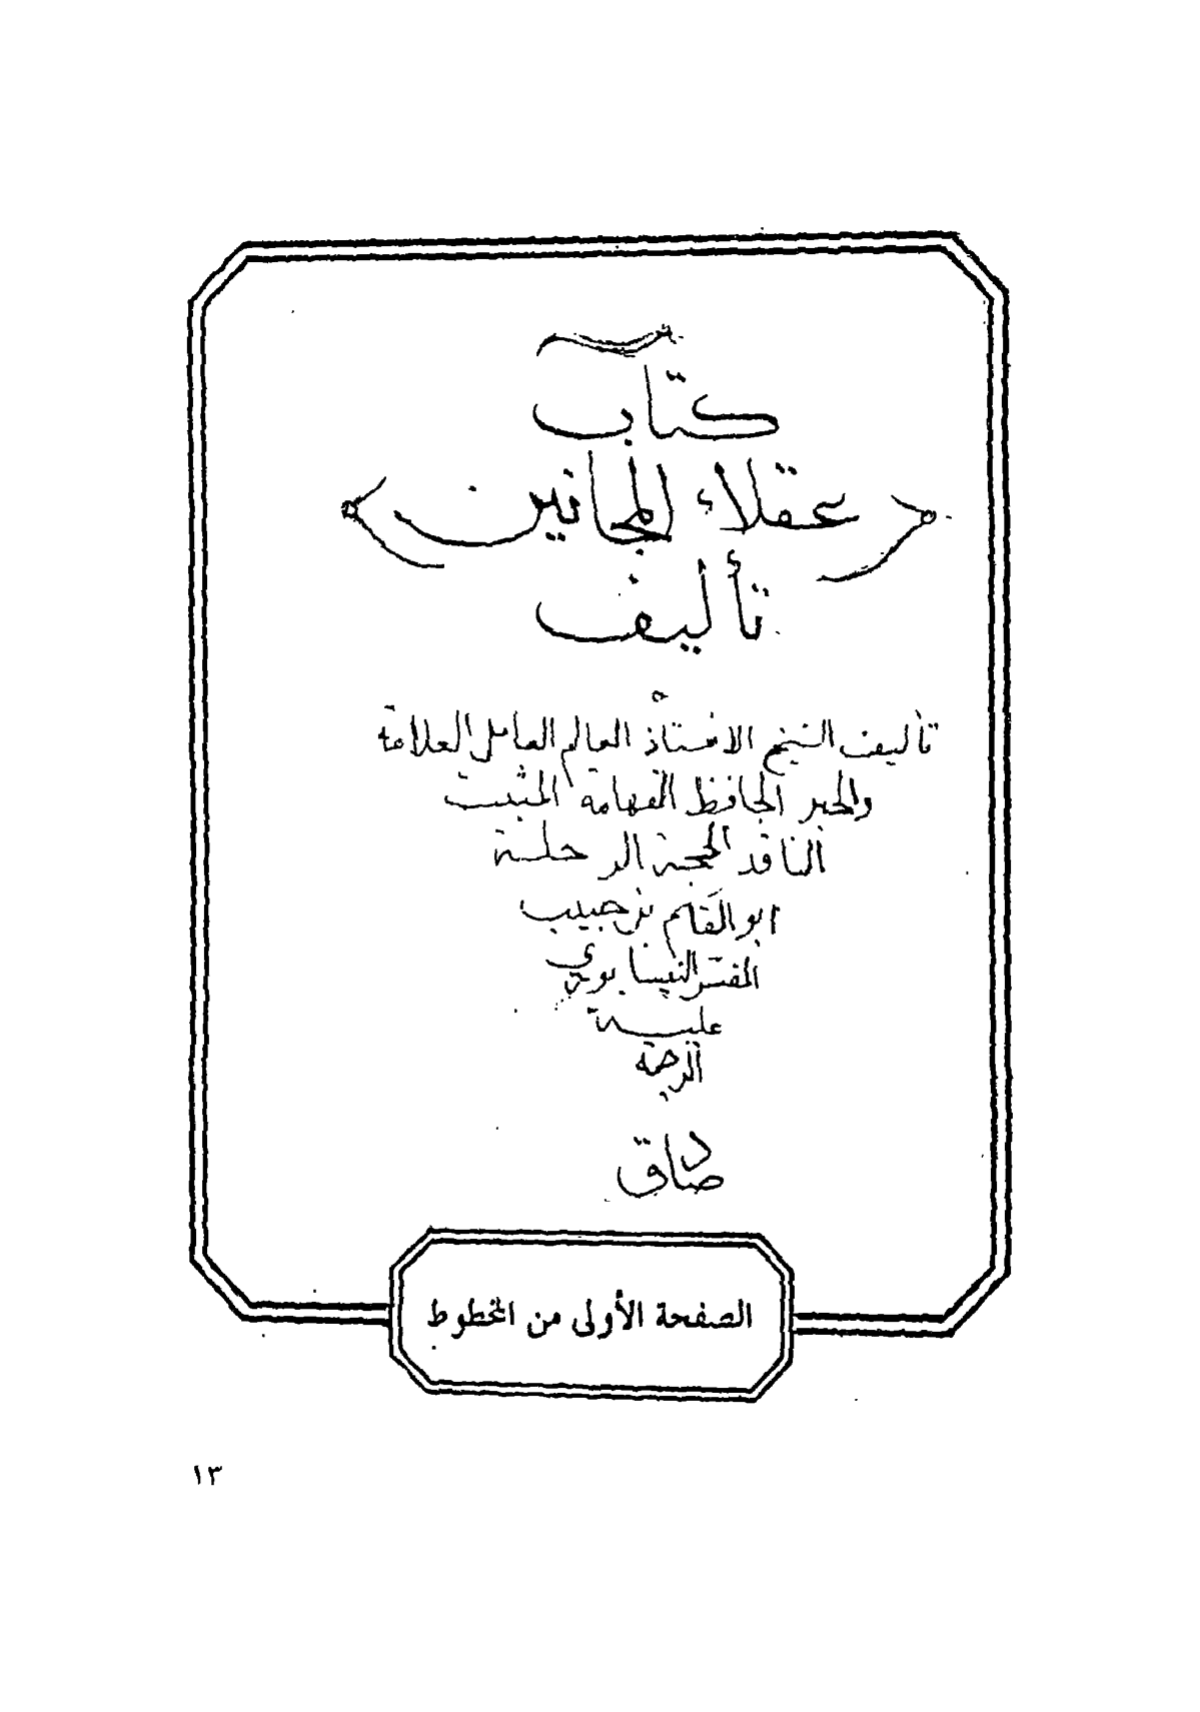 كتاب
عقلاء المجانين
تأليف
تأليف الشيخ الاستاذ العالم العامل العلامة
والحبر الحافظ الفهامة المثبت
الناقد الحجة الرحلة
ابو القاسم بن حبيب
المفسر النيسابوري
عليه
الرحمة
صادق
الصفحة الأولى من المخطوط
١٣